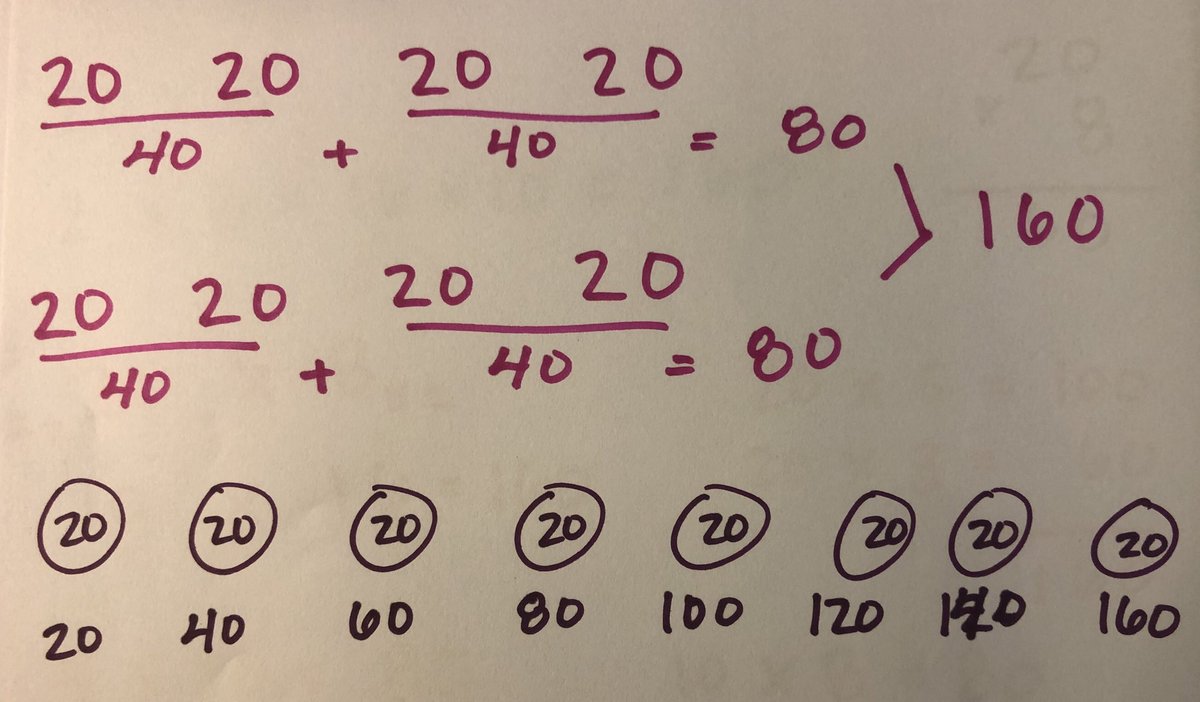 20 20 20 20
40 + 40 = 80
160
20 20 20 20
40 + 40 = 80
20 20 20 20 20 20 20 20
20 40 60 80 100 120 140 160